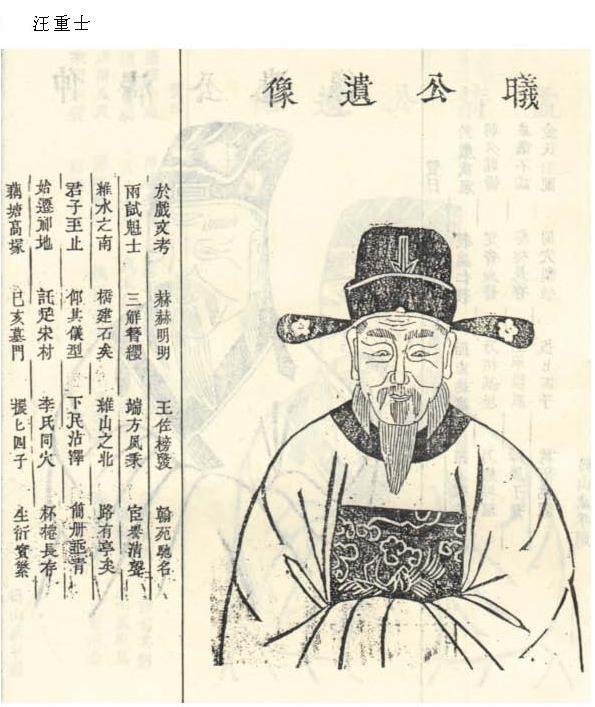 汪重士
曦公遺像
於戲文考 赫赫明明 王佐榜發 翰苑馳名
兩試魁士 三觧簪纓 端方風秉 宦譽清聲
雉水之南 橋建石矣 雉山之北 路有亭矣
君子至止 仰其儀型 下民沾澤 簡册垂青
始遷祁地 託足宋村 李氏同穴 杯棬長存
藕塘高塚 已亥墓門 四子 生衍實繁